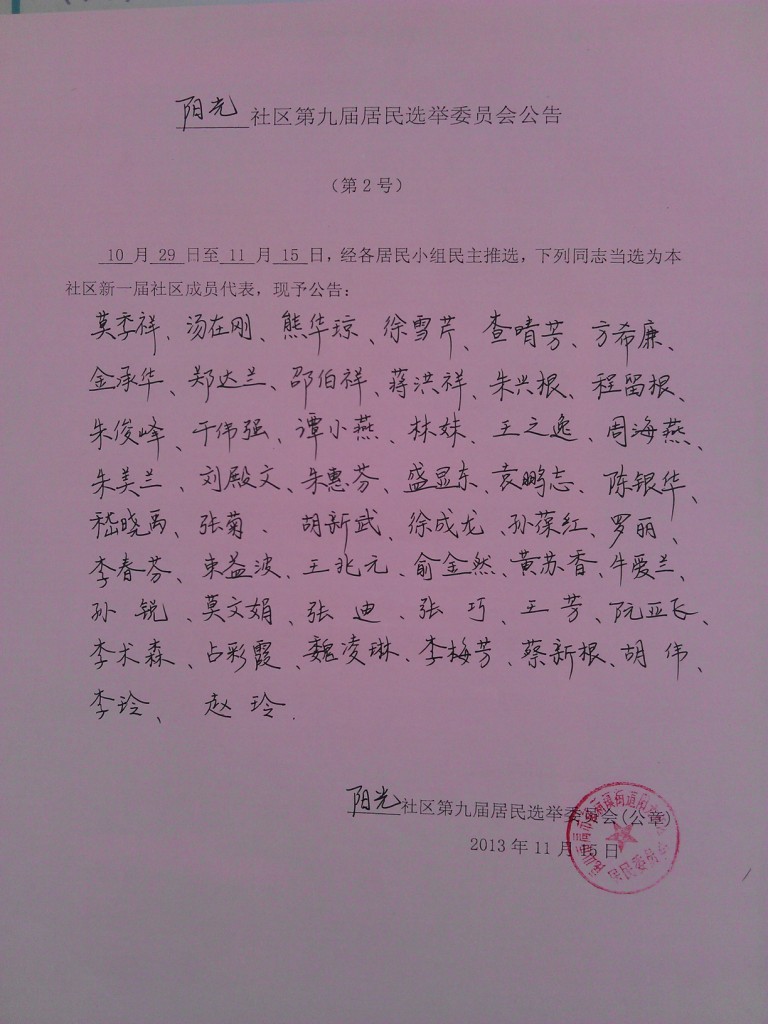 阳光社区第九届居民选举委员会公告
（第2号）
10月29日至11月15日，经各居民小组民主推选，下列同志当选为本
社区新一届社区成员代表，现予公告：
莫季祥、汤在刚、熊华琼、徐雪芹、查晴芳、方希廉、
金承华、郑达兰、邵伯祥、蒋洪祥、朱兴根、程留根、
朱俊峰、于伟强、谭小燕、林妹、王之逸、周海燕、
朱美兰、刘殿文、朱惠芬、盛显东、袁鹏志、陈银华、
嵇晓禹、张菊、胡新武、徐成龙、孙葆红、罗丽、
李春芬、束益波、王兆元、俞金然、黄苏香、牛爱兰、
孙锐、莫文娟、张迪、张巧、王芳、阮亚长、
李术森、占彩霞、魏凌琳、李梅芳、蔡新根、胡伟、
李玲、赵玲.
阳光社区第九届居民选举委员会(公章)
2013年11月15日
居民委员会